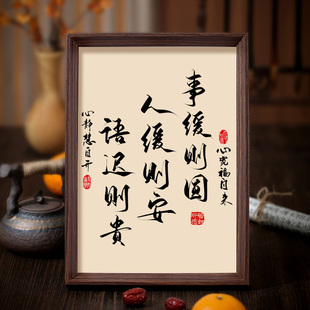 心宽福自来
事缓则圆
人缓则安
語迟则貴
心静慧自开